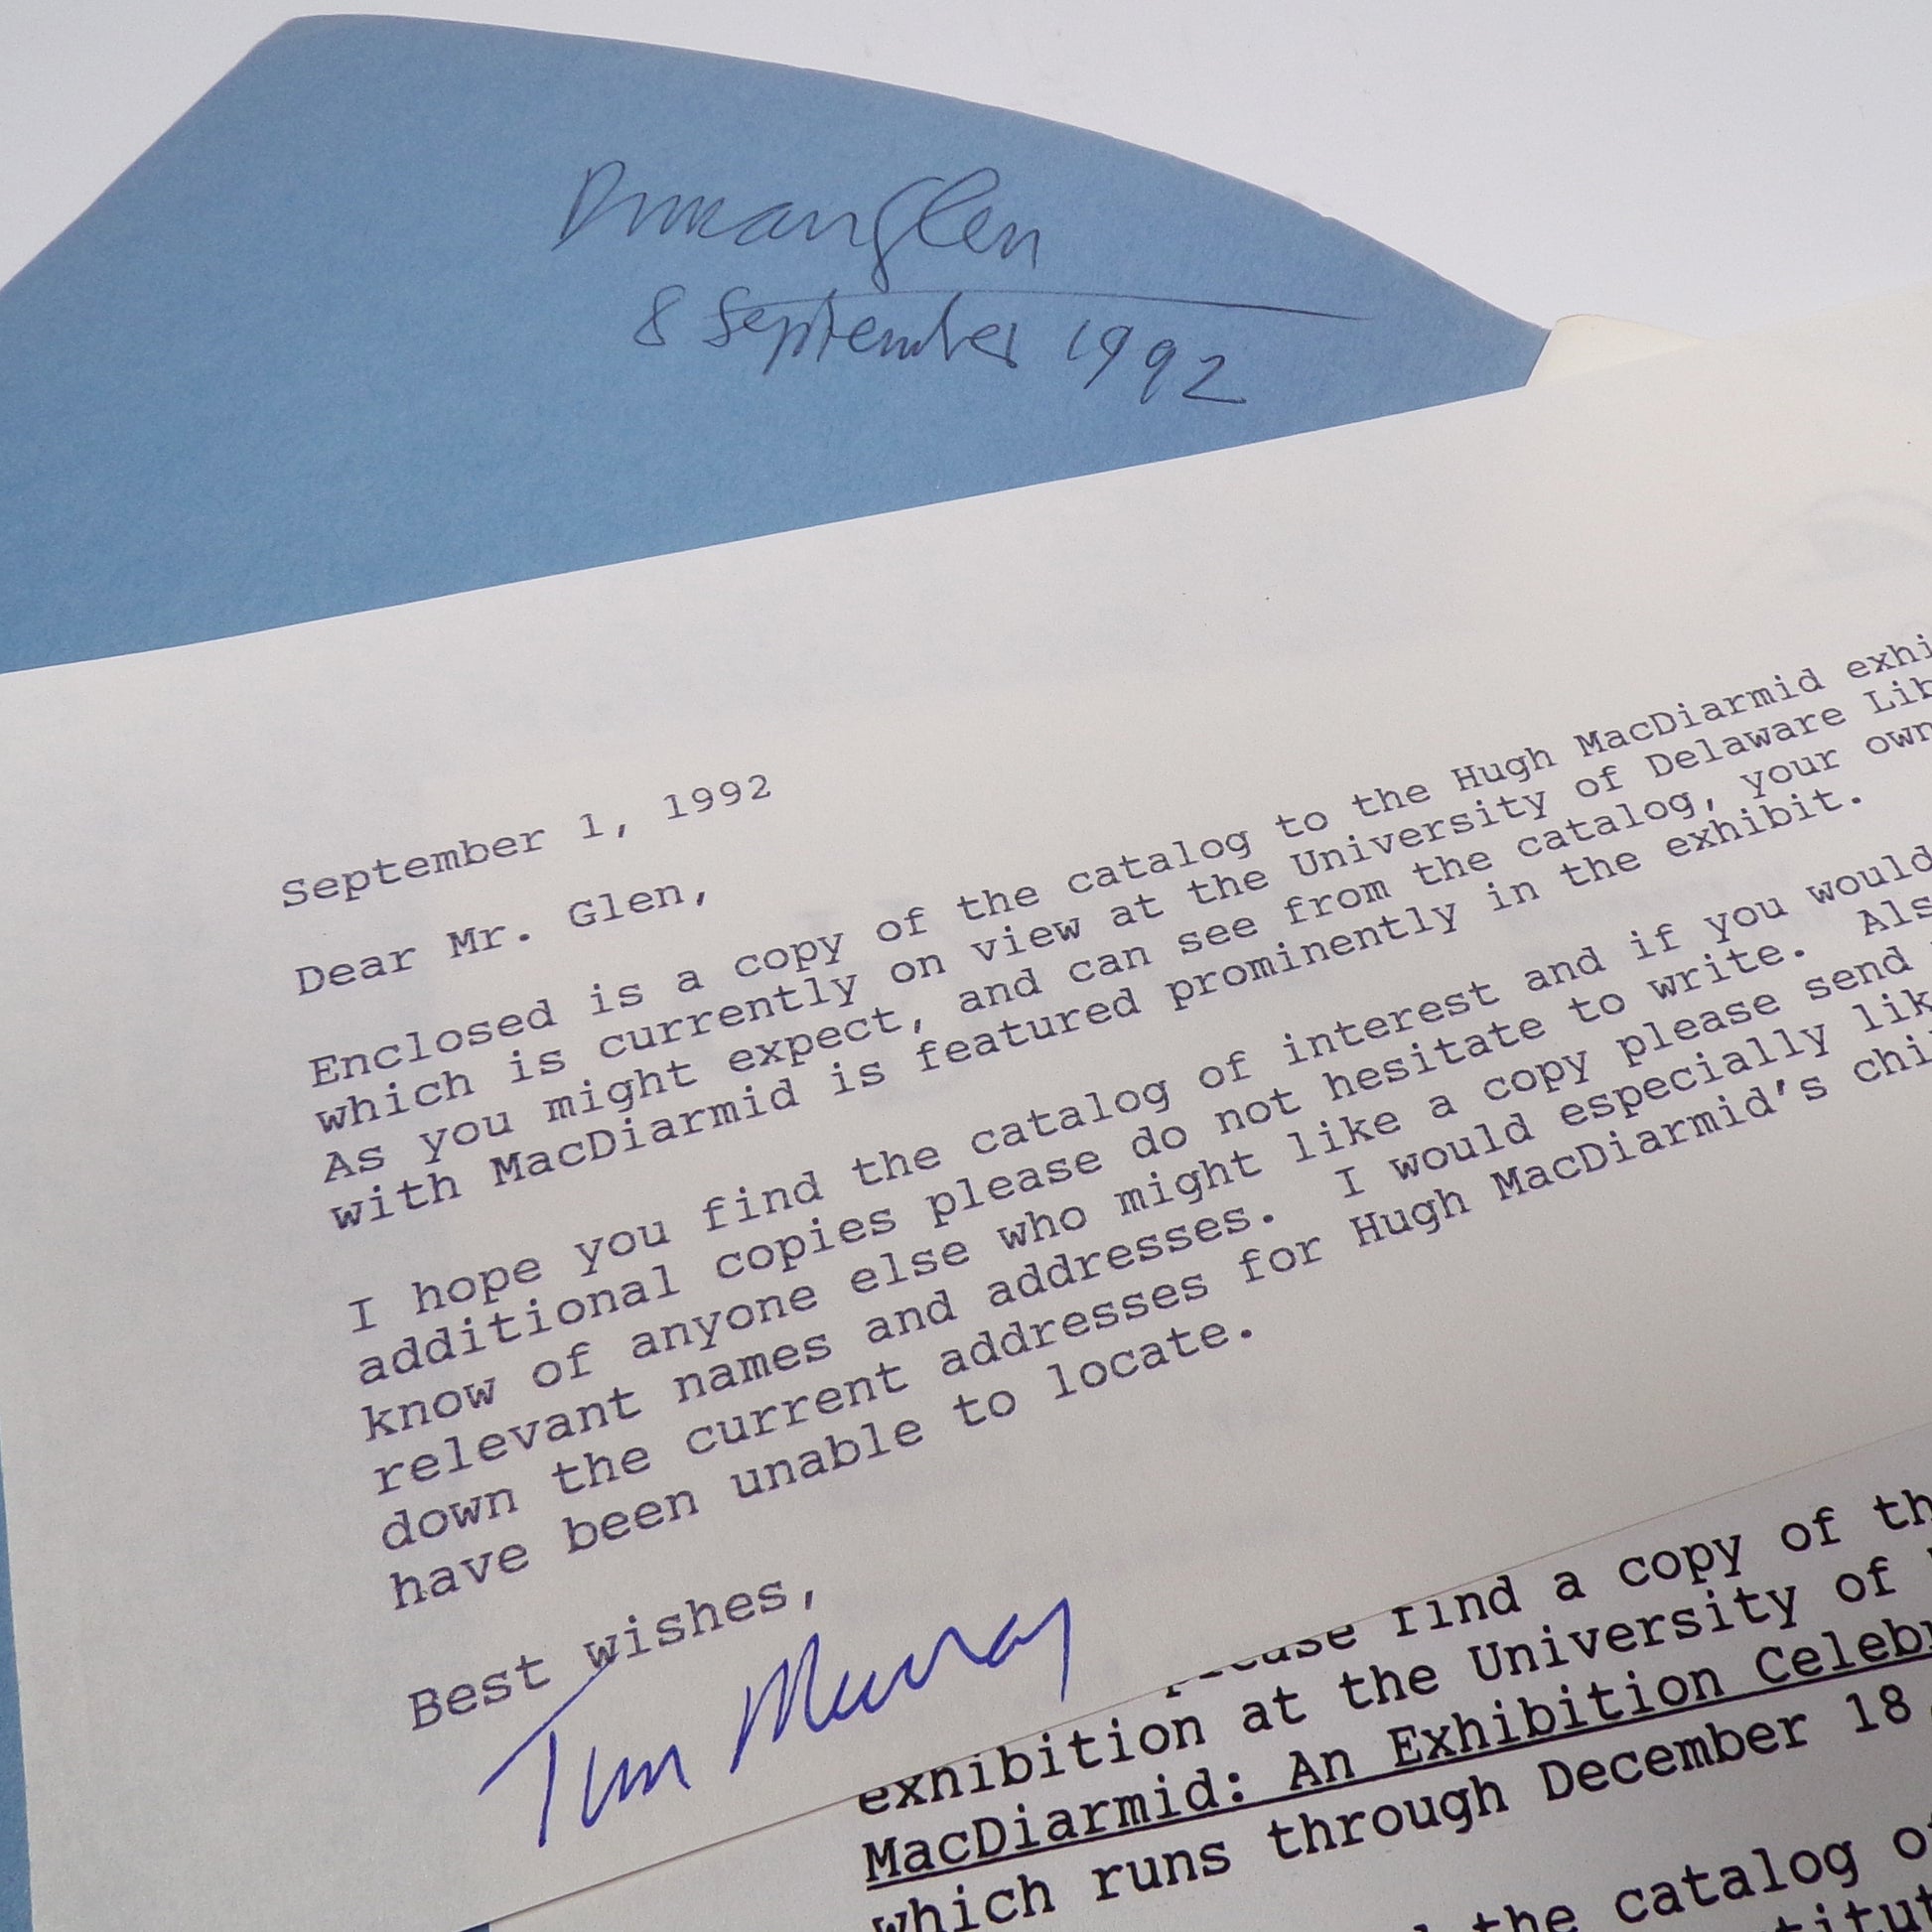 Duncan Glen
8 September 1992
September 1, 1992
Dear Mr. Glen,
Enclosed is a copy of the catalog to the Hugh MacDiarmid exhi
which is currently on view at the University of Delaware Lib
As you might expect, and can see from the catalog, your own
with MacDiarmid is featured prominently in the exhibit.
I hope you find the catalog of interest and if you would
additional copies please do not hesitate to write. Als
know of anyone else who might like a copy please send
relevant names and addresses. I would especially lik
down the current addresses for Hugh MacDiarmid's chi
have been unable to locate.
Best wishes,
Tim Murray
please find a copy of th
exhibition at the University of
MacDiarmid: An Exhibition Celebr
which runs through December 18
the catalog of
titut